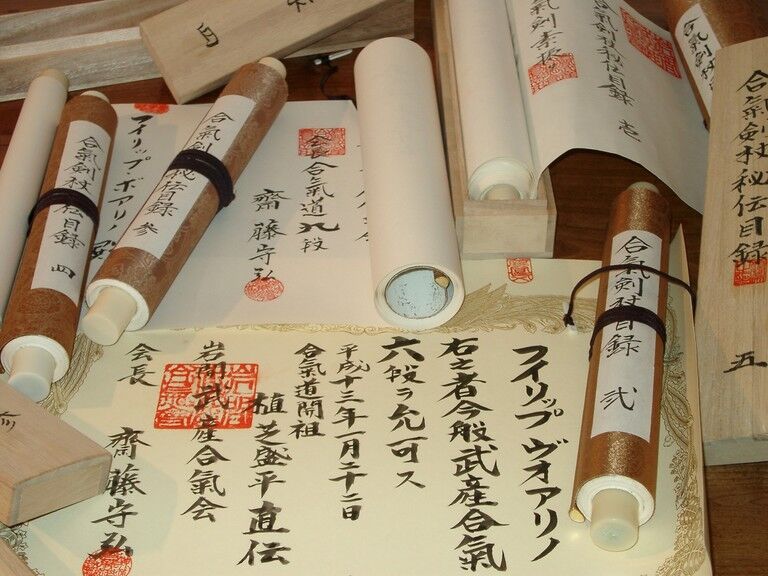 合氣剣杖秘伝目録 五
合氣剣杖
合氣剣素振
会長合氣道九段
齋藤守弘
フイリップ・ボアリノ 殿
合氣剣杖伝目録 参
合氣剣杖伝目録 四
合氣剣杖目録 弐
フイリップ ヴオアリノ
右之者今般武産合氣
六段ヲ允可ス
平成十三年一月二十二日
合氣道開祖
植芝盛平直伝
岩間武産合氣会
会長 齋藤守弘